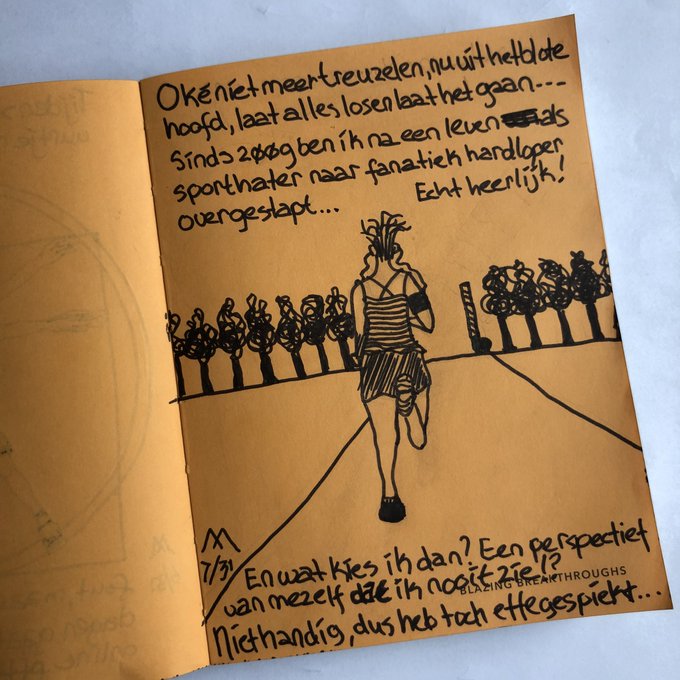 Oké niet meer treuzelen, nu uit het blote
hoofd, laat alles los en laat het gaan...
Sinds 2009 ben ik na een leven als
sporthater naar fanatiek hardloper
overgestapt... Echt heerlijk!
M
7/31
En wat kies ik dan? Een perspectief
van mezelf dat ik nooit zie!?
BLAZING BREAKTHROUGHS
Niet handig, dus heb toch effe gespiekt...